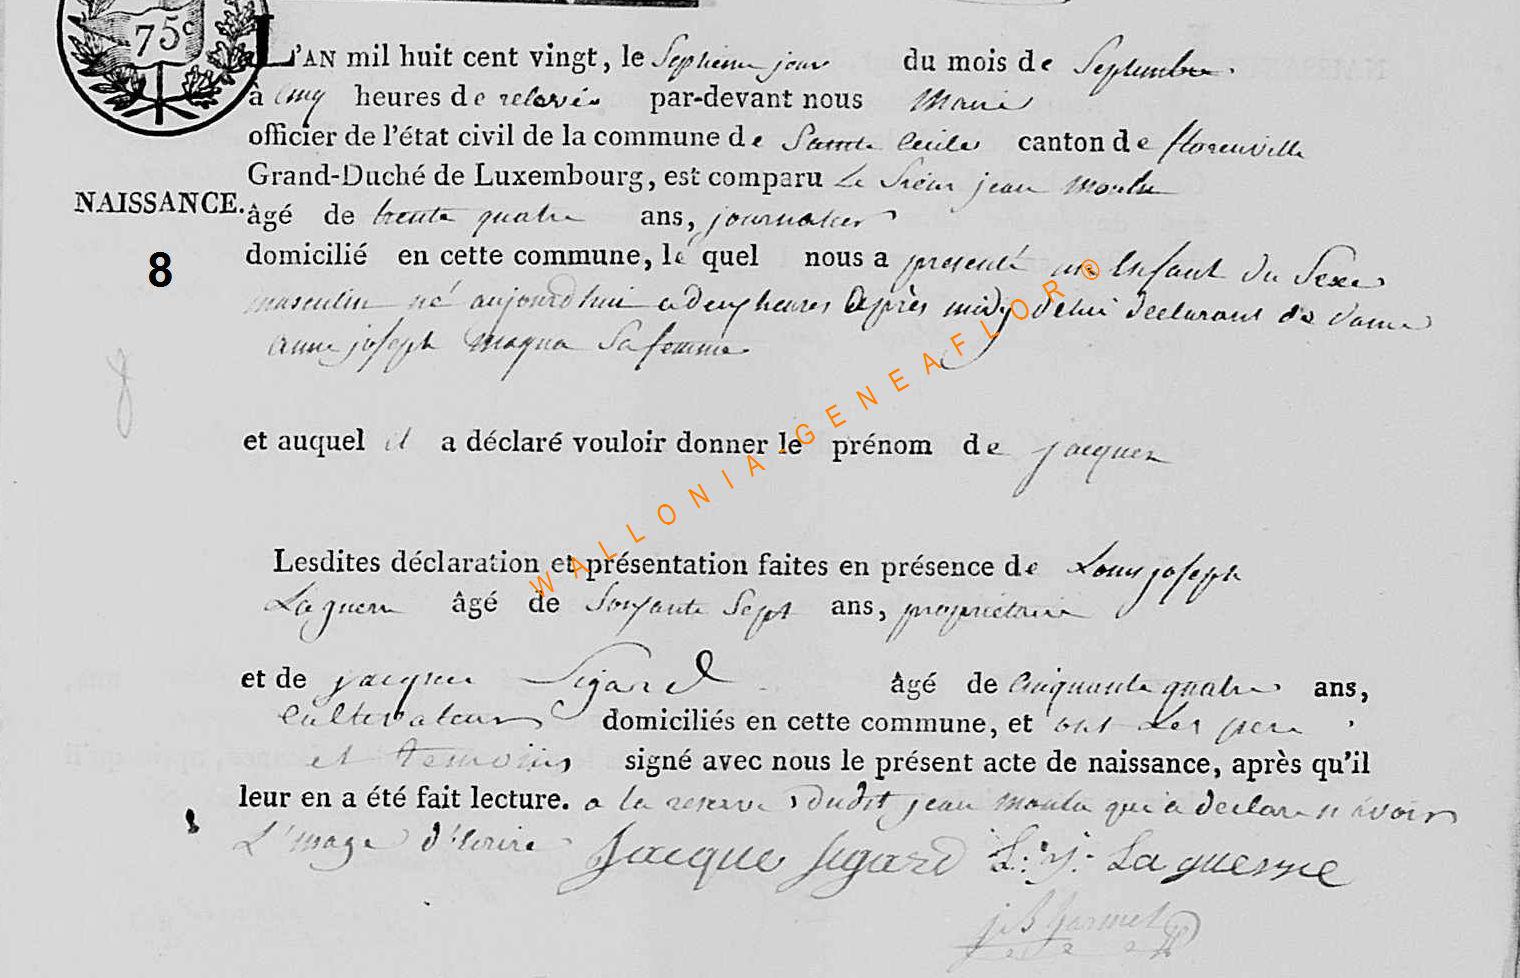 75c
L'AN mil huit cent vingt, le Septieme jour du mois de Septembre.
à cinq heures de relevée par-devant nous Maire
officier de l'état civil de la commune de Sainte Cecile canton de florenville
Grand-Duché de Luxembourg, est comparu Le Sieur jean moulu
NAISSANCE.
âgé de trente quatre ans, journalier
domicilié en cette commune, le quel nous a presenté un Enfant du Sexe
8
masculin né aujourd'hui a deux heures Après midy de lui declarant de dame
anne joseph maqua Sa femme
et auquel il a déclaré vouloir donner le prénom de jacques
Lesdites déclaration et présentation faites en présence de Louis joseph
Laguerre âgé de Soixante Sept ans, propriétaire
et de jacques Sigard âgé de Cinquante quatre ans,
Cultivateur domiciliés en cette commune, et ont Les pere
et temoins signé avec nous le présent acte de naissance, après qu'il
leur en a été fait lecture. a la reserve dudit jean moulu qui a declare n'avoir
L'usage d'Ecrire Jacque Sigard L: J: Laguerre
WALLONIA-GENEAFLOR®